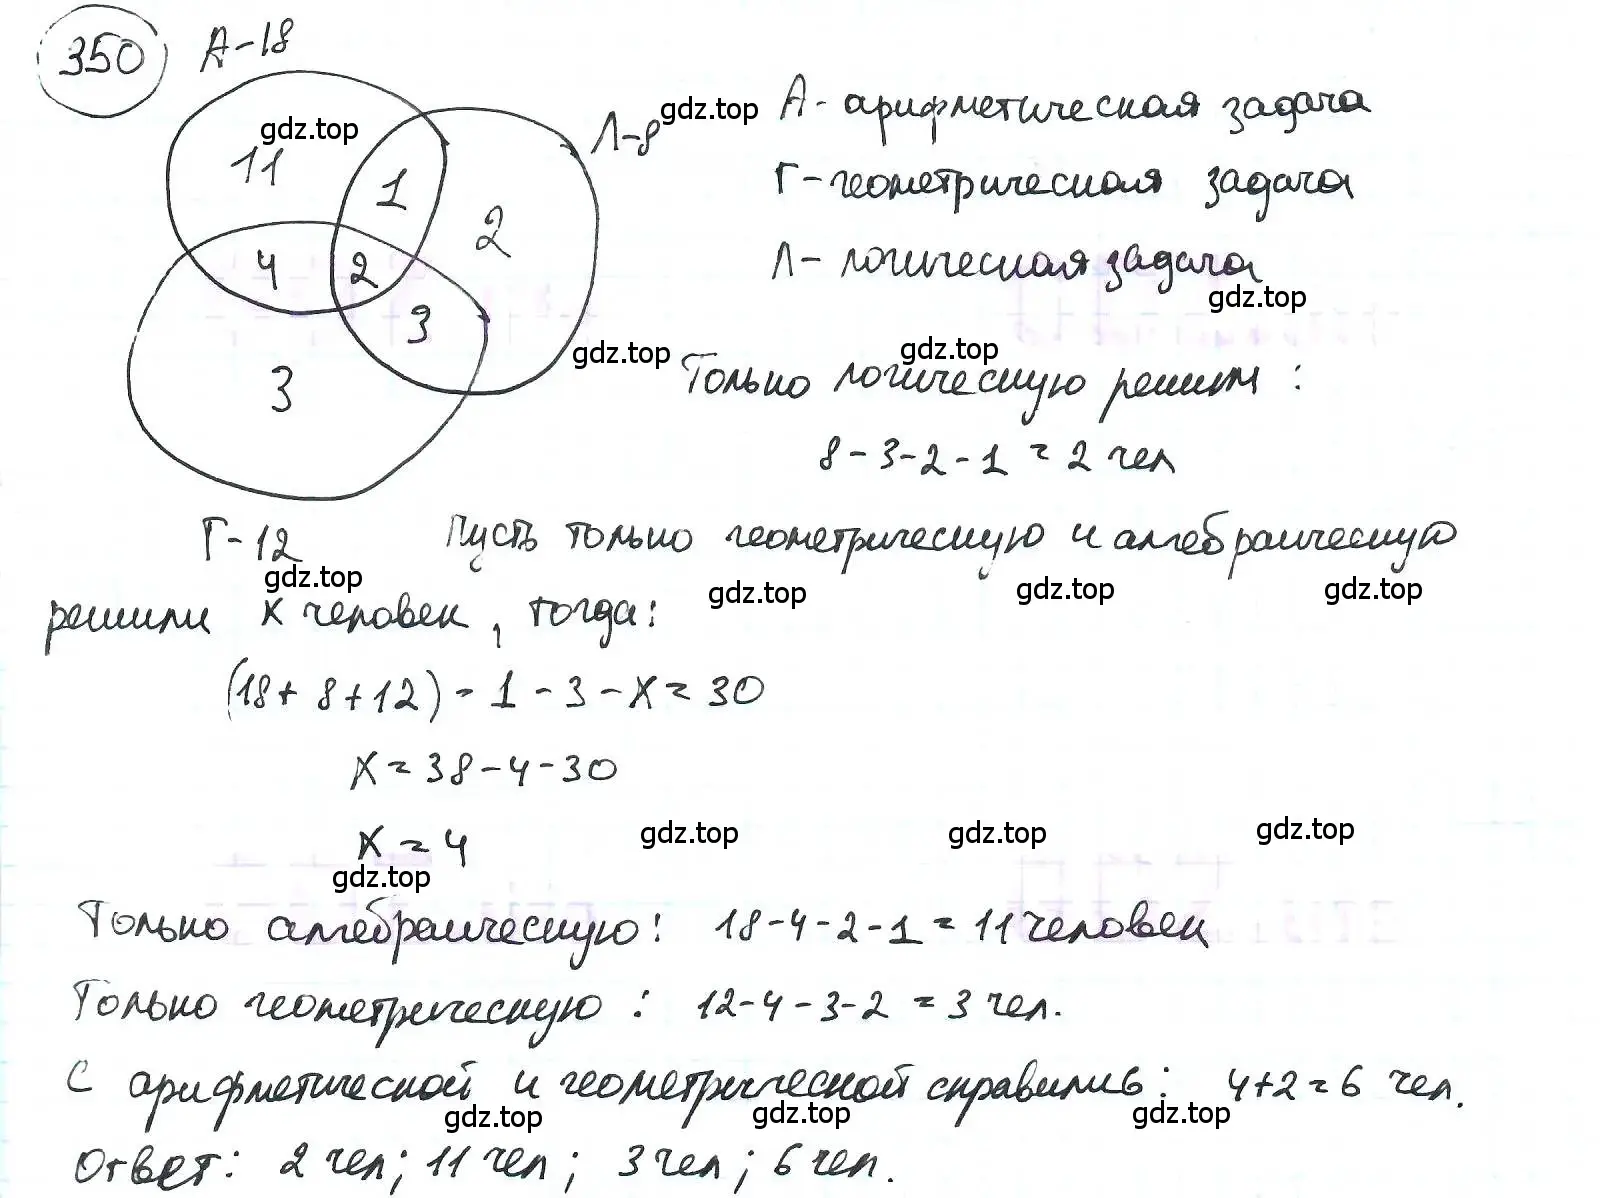 350 А-18
gdz.top
11
1
2
4
2
3
3
Л-8
gdz.top
А- арифметическая задача
Г-геометрическая задача
Л- логическая задача
gdz.top
gdz.top
gdz.top
Только логическую решили :
8-3-2-1 = 2 чел
Г-12
Пусть только геометрическую и алгебраическую
gdz.top
gdz.top
gdz.top
gdz.top
решили х человек, тогда:
(18+ 8+12) - 1 - 3 - х = 30
х = 38-4-30
х = 4
gdz.top
gdz.top
gdz.top
gdz.top
Только алгебраическую: 18-4-2-1 = 11 человек
Только геометрическую : 12-4-3-2 = 3 чел.
С арифметической и геометрической справились: 4+2=6 чел.
gdz.top
gdz.top
gdz.top
Ответ: 2 чел; 11 чел; 3 чел; 6 чел.